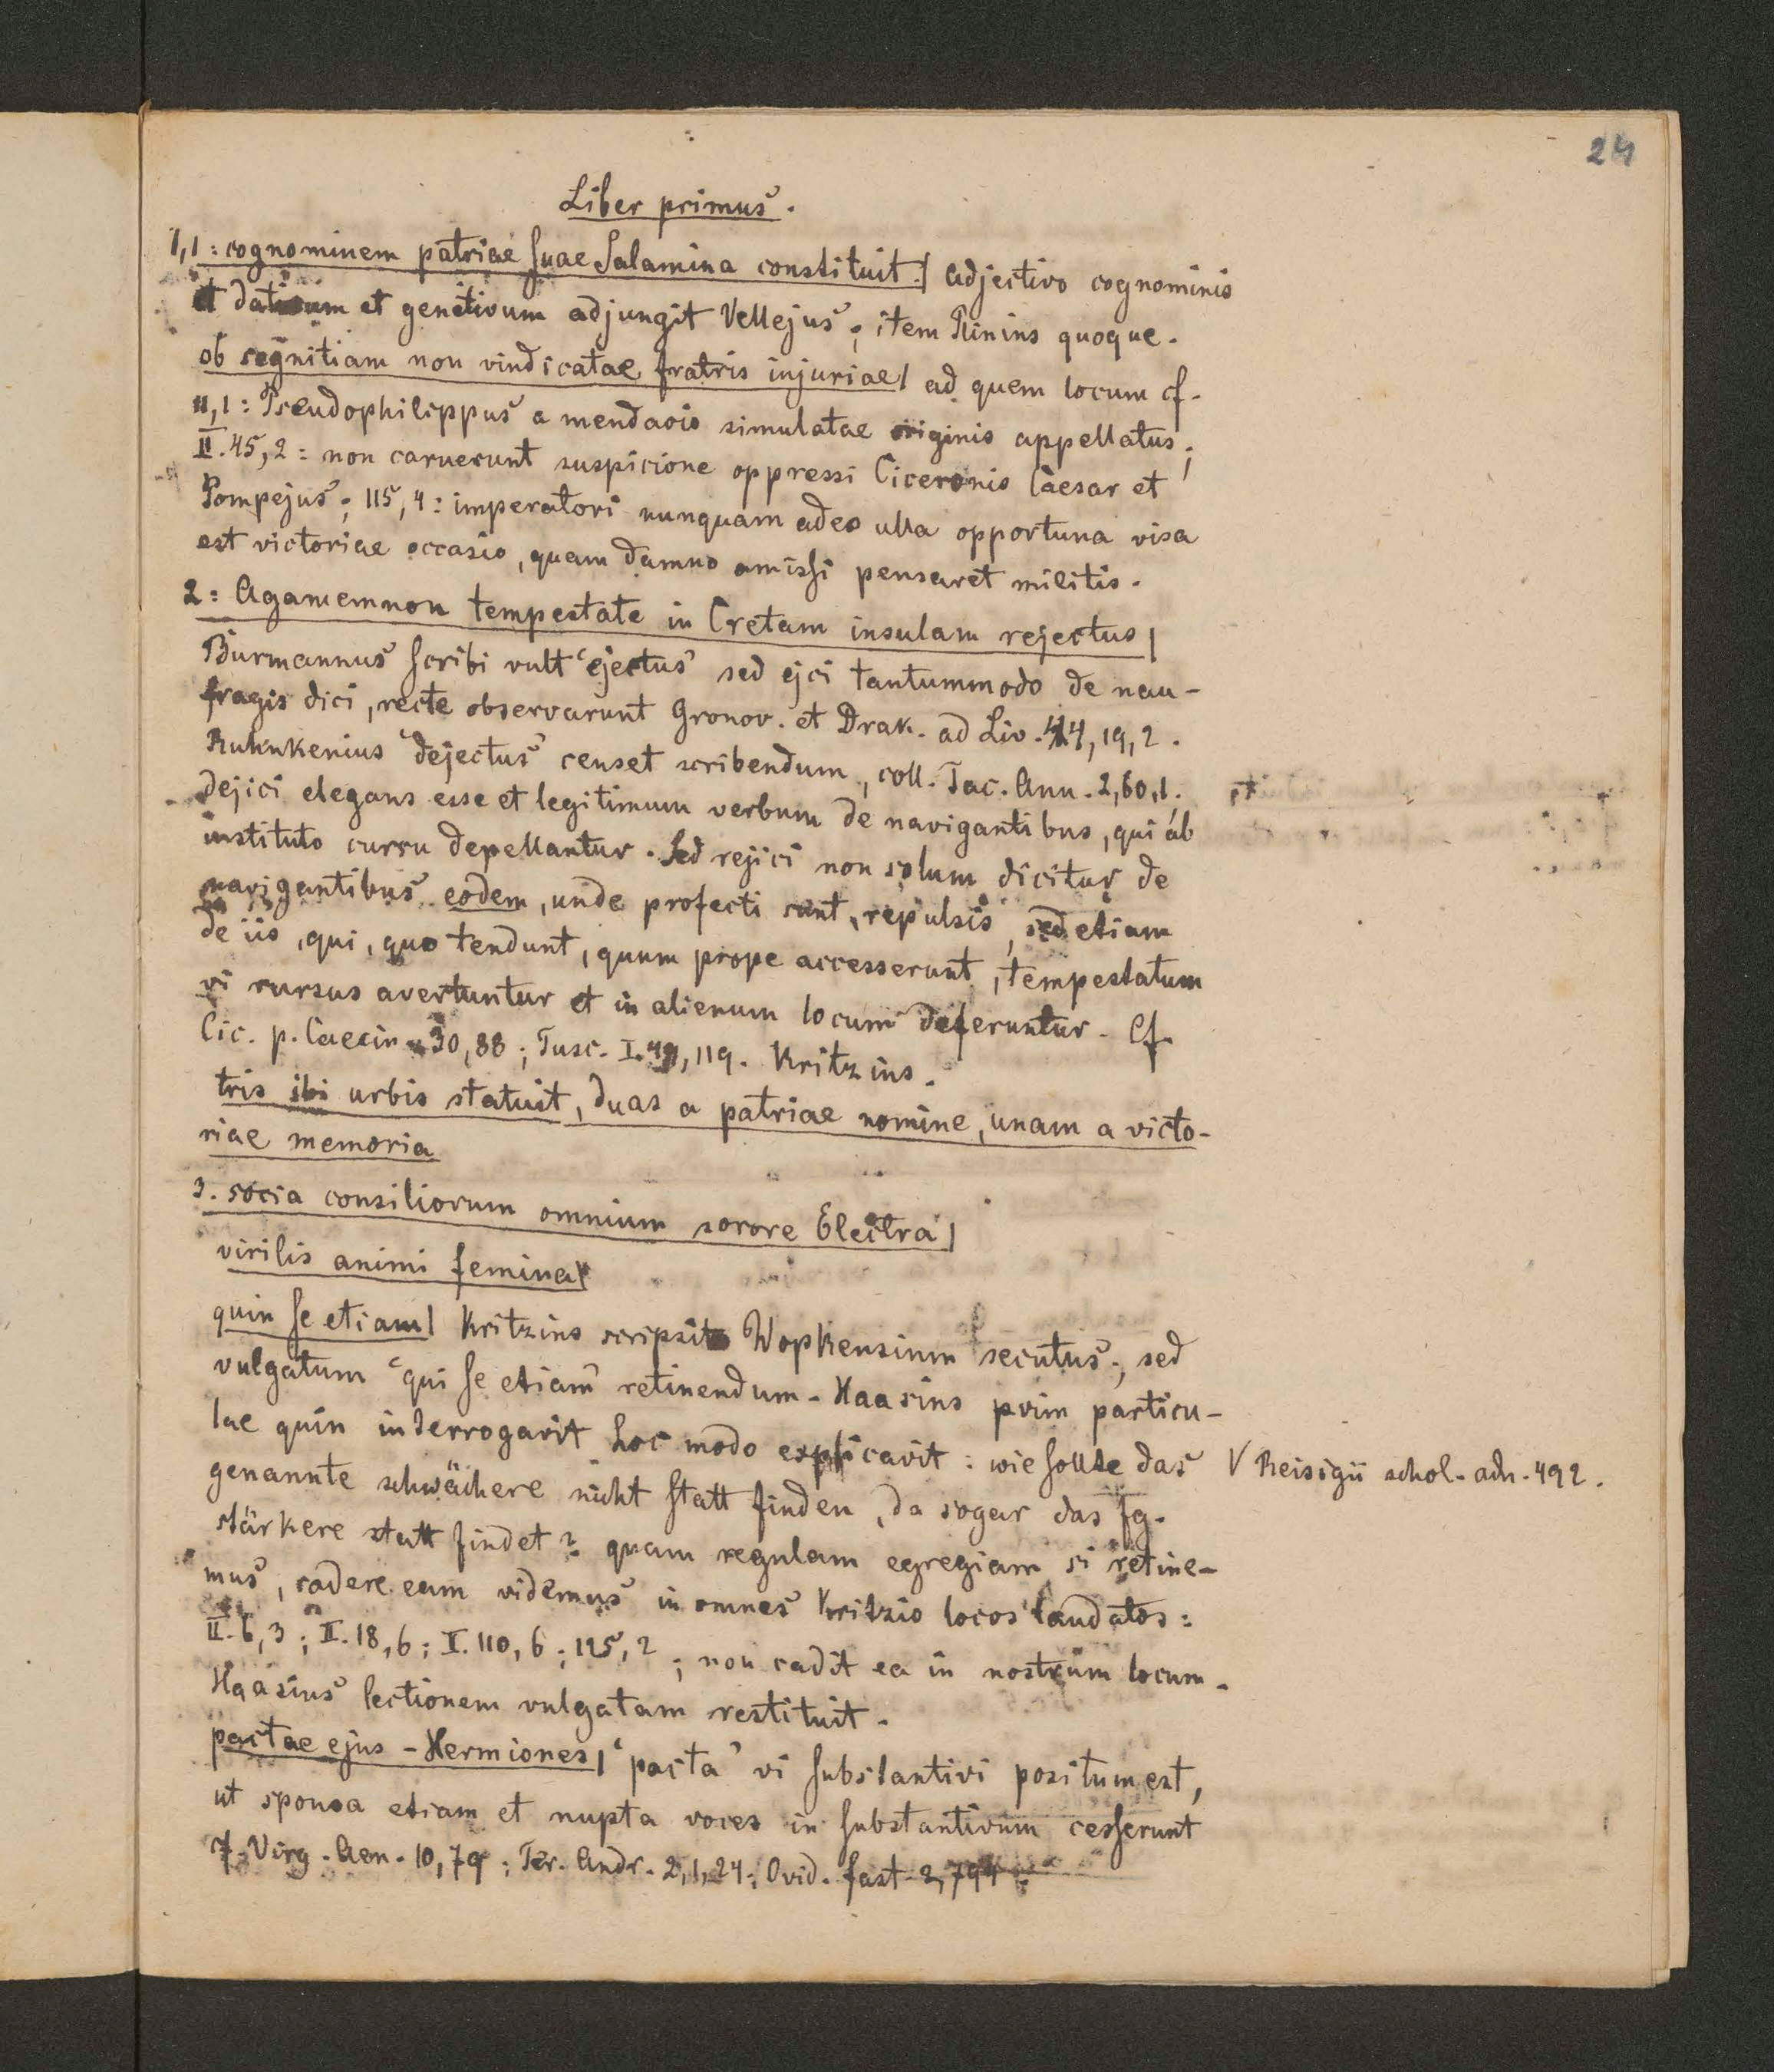 24
Liber primus.
1,1: cognominem patriae suae Salamina constituit.| adjectivo cognominis
et dativum et genitivum adjungit Vellejus; item Plinius quoque.
ob segnitiam non vindicatae fratris injuriae| ad quem locum cf.
11,1: Pseudophilippus a mendacio simulatae originis appellatus;
II. 45,2: non caruerunt suspicione oppressi Ciceronis Caesar et
Pompejus; 115,4: imperatori nunquam adeo ulla opportuna visa
est victoriae occasio, quam damno amissi pensaret militis.
2: Agamemnon tempestate in Cretam insulam rejectus|
Burmannus scribi vult "ejectus" sed ejci tantummodo de nau-
fragis dici, recte observarunt Gronov. et Drak. ad Liv. 44,19,2.
Ruhnkenius "dejectus" censet scribendum, coll. Tac. Ann. 2,60,1.
dejici elegans esse et legitimum verbum de navigantibus, qui ab
instituto cursu depellantur. Sed rejici non solum dicitur de
navigantibus eodem, unde profecti sunt, repulsis, sed etiam
de iis, qui, quo tendunt, quum prope accesserunt, tempestatum
vi rursus avertuntur et in alienum locum deferuntur. Cf.
Cic. p. Caecin. 30,88; Tusc. I. 49,119. Kritzius.
tris ibi urbis statuit, duas a patriae nomine, unam a victo-
riae memoria
3. socia consiliorum omnium sorore Electra|
virilis animi femina|
quin se etiam| Kritzius scripsit Wopkensium secutus; sed
vulgatum "qui se etiam" retinendum. Haasius vim particu-
lae quin interrogavit hoc modo explicavit: wie sollte das
genannte schwächere nicht statt finden, da sogar das fg.
stärkere statt findet? quam regulam egregiam si retine-
mus, cadere eam videmus in omnes Kritzio locos laudatos:
II. 6,3; II. 18,6; II. 110,6; 125,2; non cadit ea in nostrum locum.
Haasius lectionem vulgatam restituit.
V Reisigii schol. adn. 492.
pactae ejus - Hermiones| "pacta" vi substantivi positum est,
ut sponsa etiam et nupta voces in substantivum cesserunt
Virg. Aen. 10,79; Ter. Andr. 2,1,24; Ovid. fast. 2,794